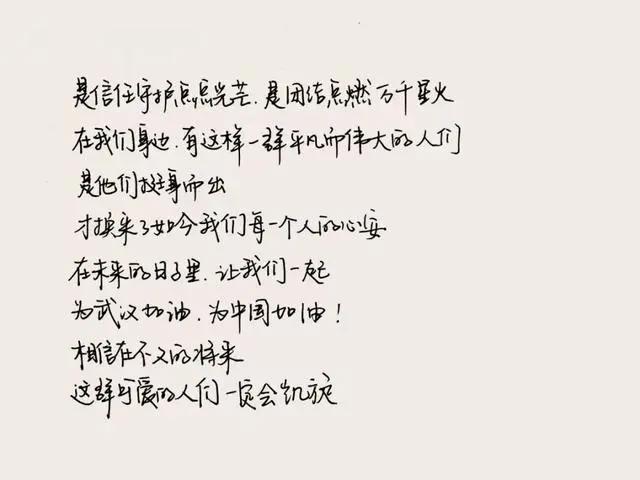 是信任守护点点光芒.是团结点燃万千星火
在我们身边.有这样一群平凡而伟大的人们
是他们挺身而出
才换来了如今我们每一个人的心安
在未来的日子里.让我们一起
为武汉加油.为中国加油!
相信在不久的将来
这群可爱的人们一定会凯旋